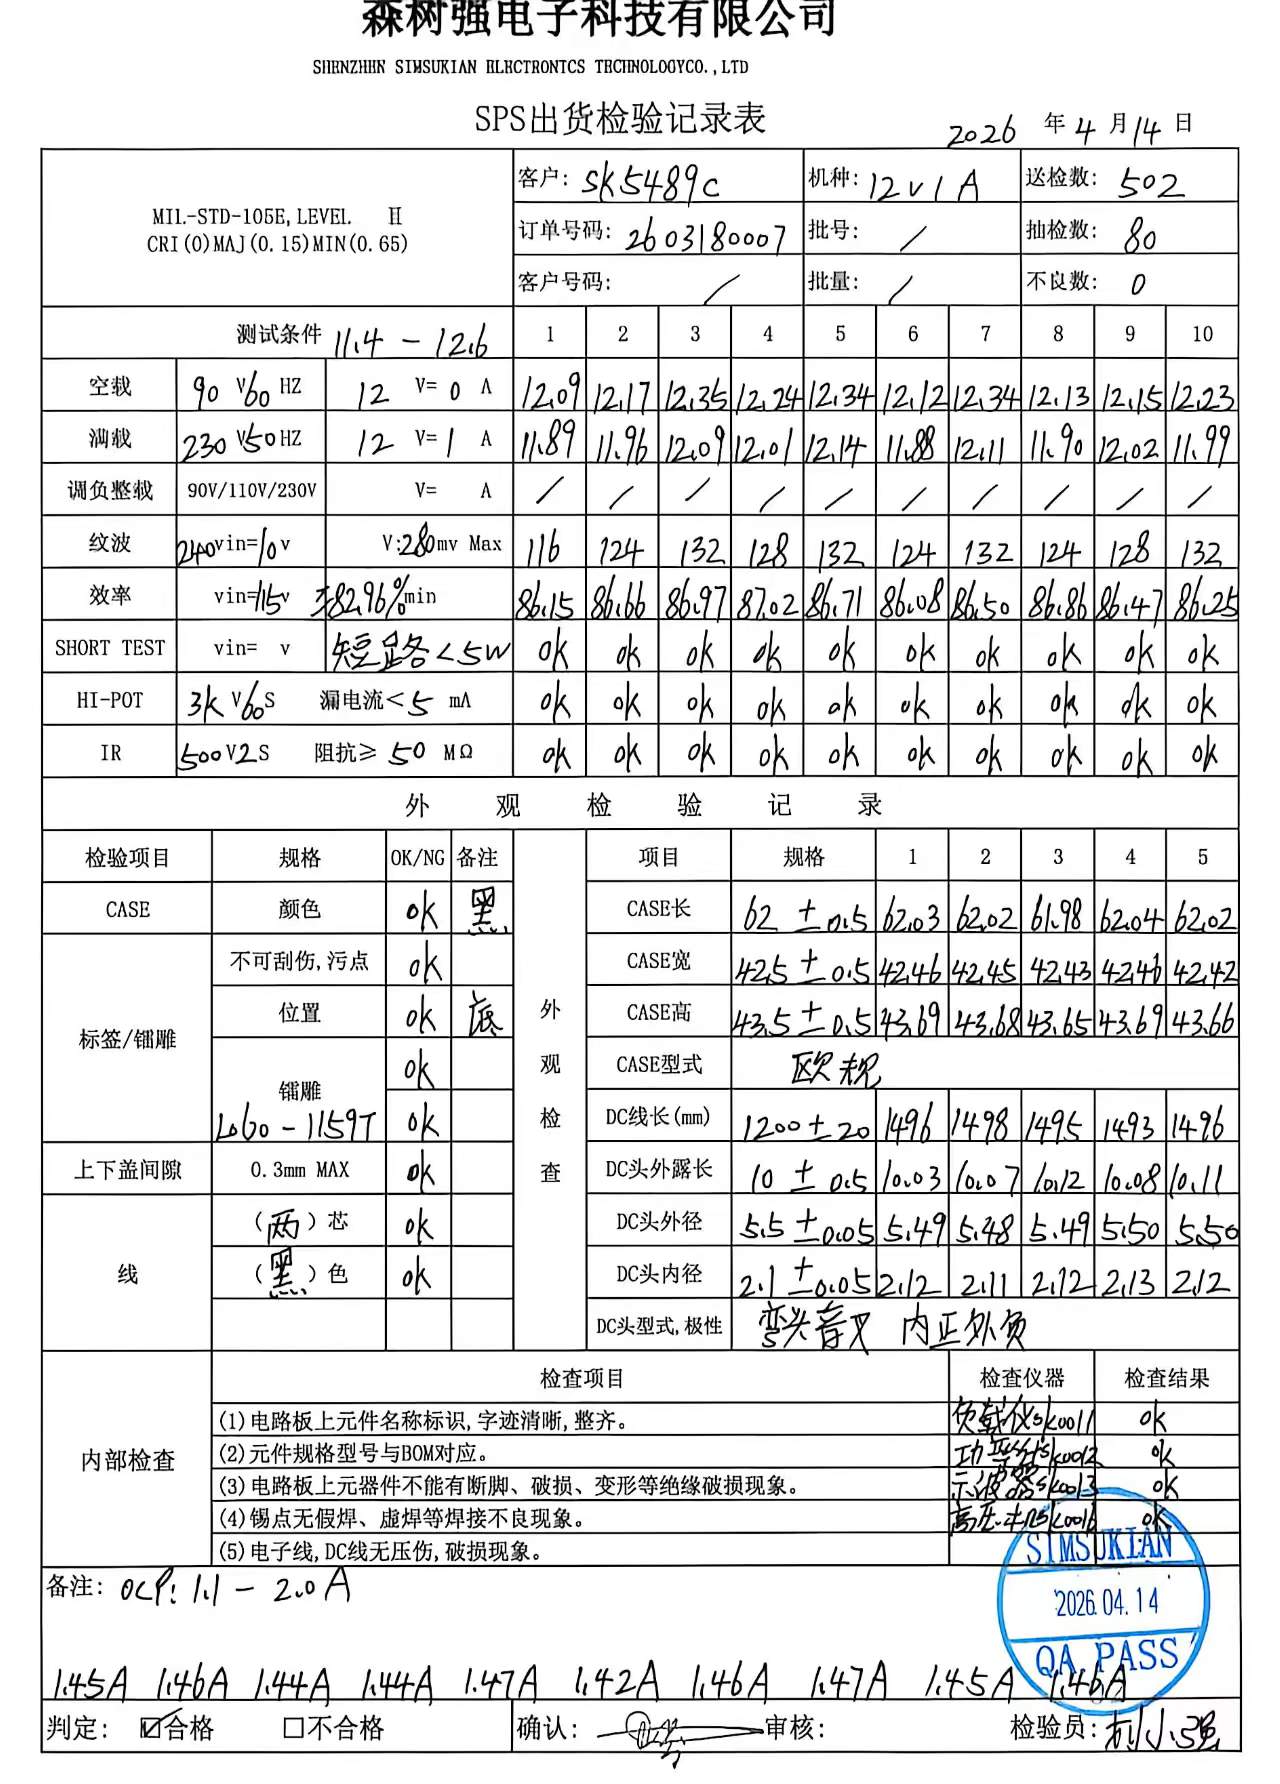 森树强电子科技有限公司
SHENZHEN SIMSUKIAN ELECTRONTCS TECHNOLOGYCO.,LTD
SPS出货检验记录表
2026 年 4 月 14 日
MIL-STD-105E,LEVEL Ⅱ
CRI(0)MAJ(0.15)MIN(0.65)
客户: SK5489C 机种: 12V1A 送检数: 502
订单号码: 2603180007 批号: / 抽检数: 80
客户号码: / 批量: / 不良数: 0
测试条件 11.4 - 12.6 1 2 3 4 5 6 7 8 9 10
空载 90 V 60 HZ 12 V= 0 A 12.09 12.17 12.35 12.24 12.34 12.12 12.34 12.13 12.15 12.23
满载 230 V 50 HZ 12 V= 1 A 11.89 11.96 12.09 12.01 12.14 11.88 12.11 11.90 12.02 11.99
调负整载 90V/110V/230V V= A / / / / / / / / / /
纹波 240vin=10v V:280mv Max 116 124 132 128 132 124 132 124 128 132
效率 vin=115v 82.96%min 86.15 86.66 86.97 87.02 86.71 86.08 86.50 86.86 86.47 86.25
SHORT TEST vin= v 短路<5W ok ok ok ok ok ok ok ok ok ok
HI-POT 3K V 60 S 漏电流< 5 mA ok ok ok ok ok ok ok ok ok ok
IR 500 V 2 S 阻抗≥ 50 MΩ ok ok ok ok ok ok ok ok ok ok
外观检验记录
检验项目 规格 OK/NG 备注 项目 规格 1 2 3 4 5
CASE 颜色 ok 黑 CASE长 62 ±0.5 62.03 62.02 61.98 62.04 62.02
不可刮伤,污点 ok CASE宽 42.5 ±0.5 42.46 42.45 42.43 42.46 42.42
标签/镭雕 位置 ok 底 外观检查 CASE高 43.5 ±0.5 43.69 43.68 43.65 43.69 43.66
ok CASE型式 欧规
镭雕 LOGO-1159T ok DC线长(mm) 1200±20 1496 1498 1495 1493 1496
上下盖间隙 0.3mm MAX ok DC头外露长 10 ±0.5 10.03 10.07 10.12 10.08 10.11
线 (两)芯 ok DC头外径 5.5 ±0.05 5.49 5.48 5.49 5.50 5.50
(黑)色 ok DC头内径 2.1 ±0.05 2.12 2.11 2.12 2.13 2.12
DC头型式,极性 弯头音叉 内正外负
内部检查 检查项目 检查仪器 检查结果
(1)电路板上元件名称标识,字迹清晰,整齐。 负载仪SK0011 ok
(2)元件规格型号与BOM对应。 ok
(3)电路板上元器件不能有断脚、破损、变形等绝缘破损现象。 示波器SK0013 ok
(4)锡点无假焊、虚焊等焊接不良现象。 ok
(5)电子线,DC线无压伤,破损现象。
SIMSUKIAN
2026.04.14
QA.PASS
备注: OCP: 1.1 - 2.0A
1.45A 1.46A 1.44A 1.44A 1.47A 1.42A 1.46A 1.47A 1.45A 1.46A
判定: ☑合格 □不合格 确认: 审核: 检验员: 刘小强